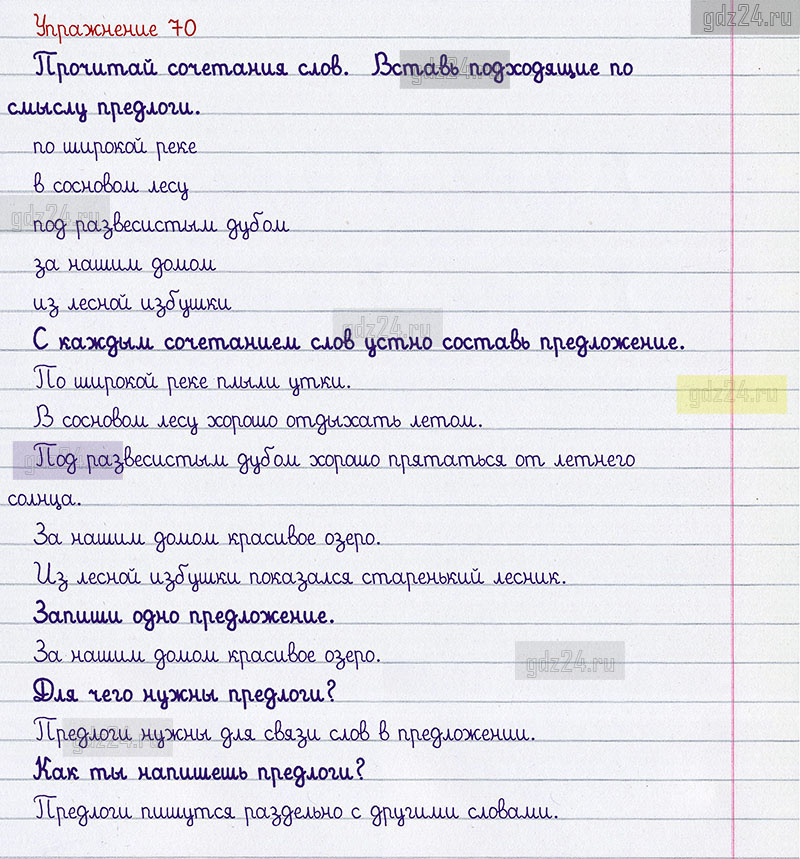 gdz24.ru
Упражнение 70
Прочитай сочетания слов. Вставь подходящие по
gdz24.ru
смыслу предлоги.
по широкой реке
в сосновом лесу
gdz24.ru
под развесистым дубом
за нашим домом
из лесной избушки
gdz24.ru
С каждым сочетанием слов устно составь предложение.
По широкой реке плыли утки.
gdz24.ru
В сосновом лесу хорошо отдыхать летом.
Под развесистым дубом хорошо прятаться от летнего
gdz24.ru
солнца.
За нашим домом красивое озеро.
Из лесной избушки показался старенький лесник.
Запиши одно предложение.
За нашим домом красивое озеро.
gdz24.ru
Для чего нужны предлоги?
Предлоги нужны для связи слов в предложении.
gdz24.ru
Как ты напишешь предлоги?
Предлоги пишутся раздельно с другими словами.